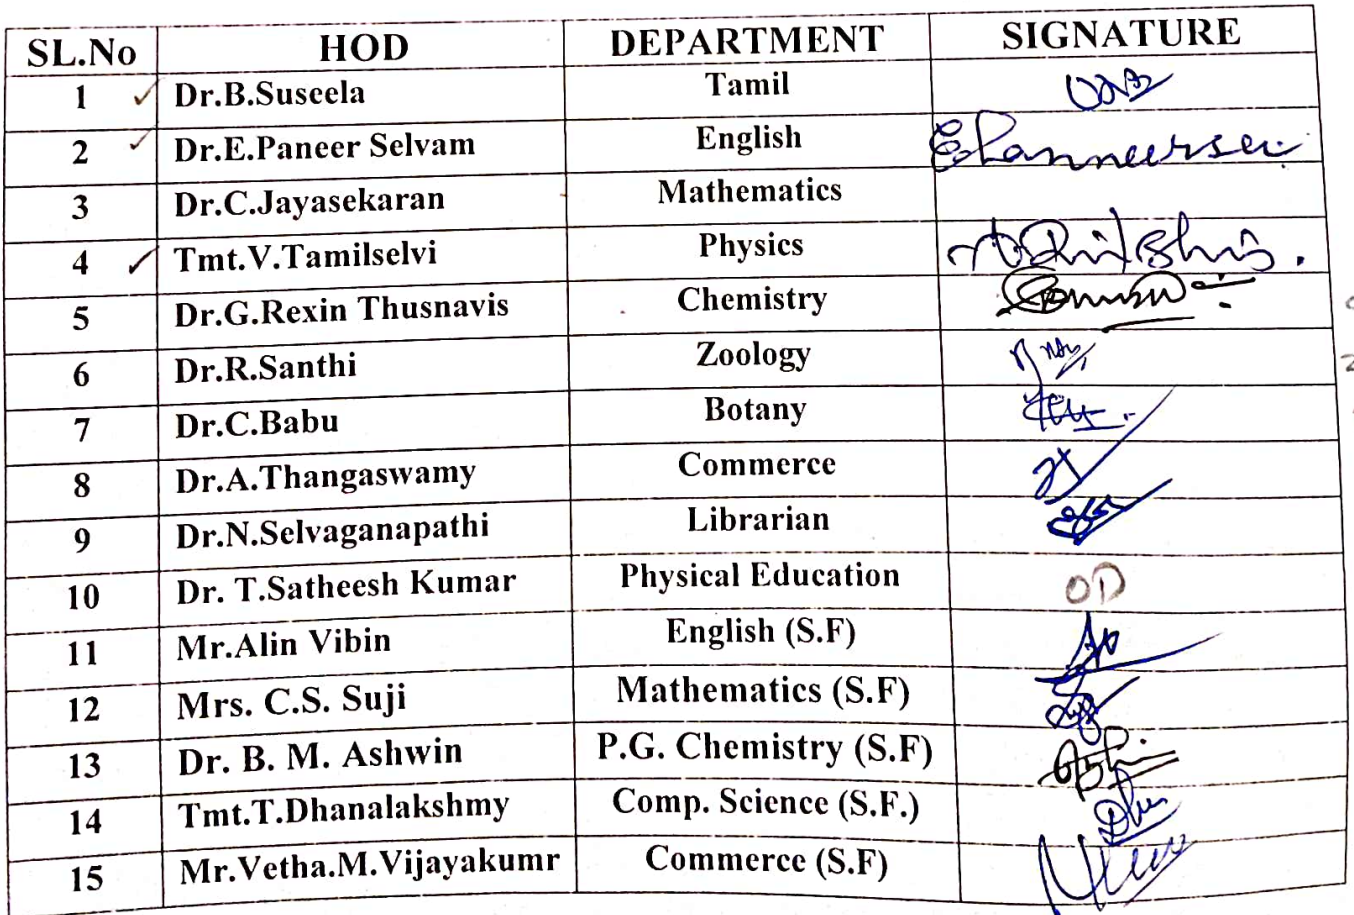 SL.No HOD DEPARTMENT SIGNATURE
1 Dr.B.Suseela Tamil
2 Dr.E.Paneer Selvam English
3 Dr.C.Jayasekaran Mathematics
4 Tmt.V.Tamilselvi Physics
5 Dr.G.Rexin Thusnavis Chemistry
6 Dr.R.Santhi Zoology
7 Dr.C.Babu Botany
8 Dr.A.Thangaswamy Commerce
9 Dr.N.Selvaganapathi Librarian
10 Dr. T.Satheesh Kumar Physical Education OD
11 Mr.Alin Vibin English (S.F)
12 Mrs. C.S. Suji Mathematics (S.F)
13 Dr. B. M. Ashwin P.G. Chemistry (S.F)
14 Tmt.T.Dhanalakshmy Comp. Science (S.F.)
15 Mr.Vetha.M.Vijayakumr Commerce (S.F)